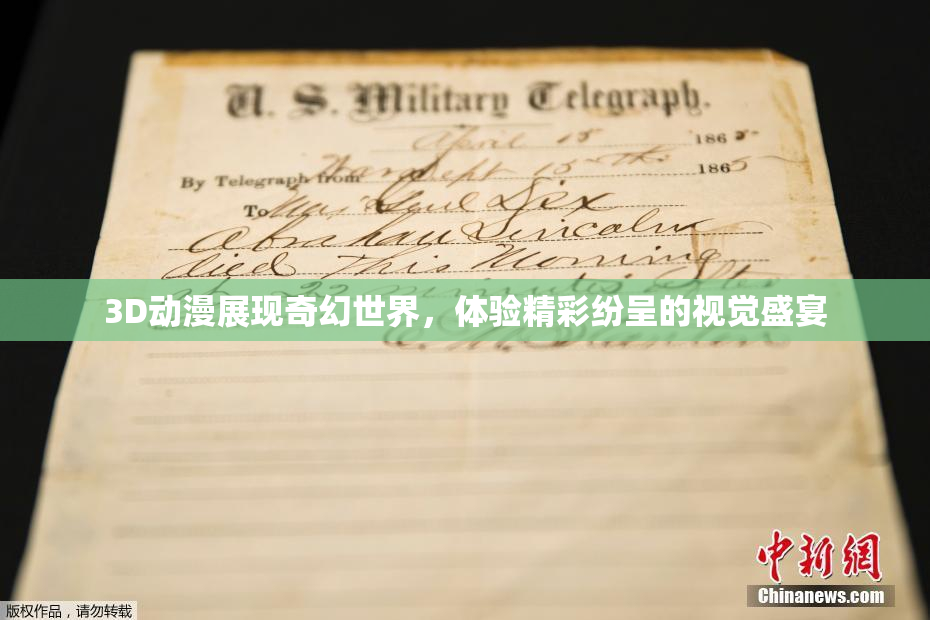 U. S. Military Telegraph.
April 15 1865
By Telegraph from War Dept 15th 1865
To Maj Genl Dix
Abraham Lincoln
died This Morning
at 22 minutes after
3D动漫展现奇幻世界，体验精彩纷呈的视觉盛宴
E. M. Stanton
中新网
Chinanews.com
版权作品，请勿转载